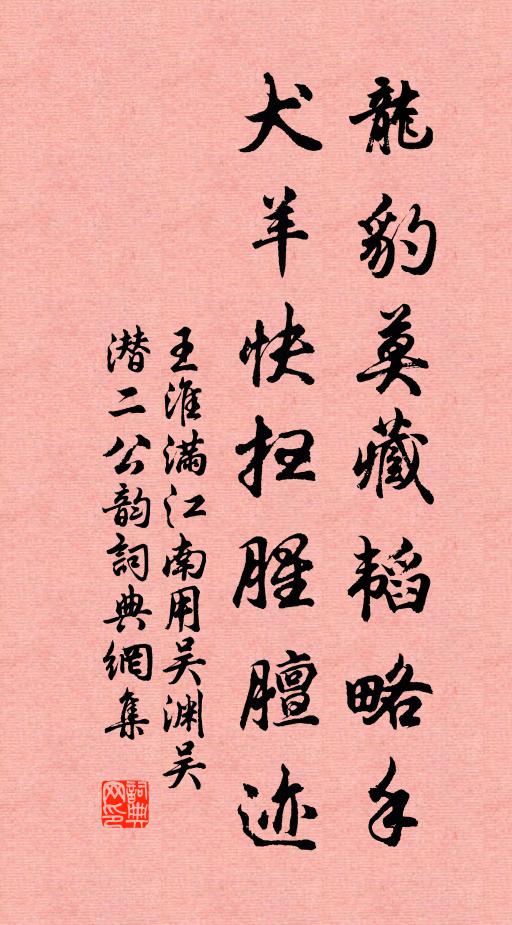 龍豹莫藏韬略手
犬羊快扫腥膻迹
王淮满江南用吴渊吴
潜二公韵詞典網集
詞典网印